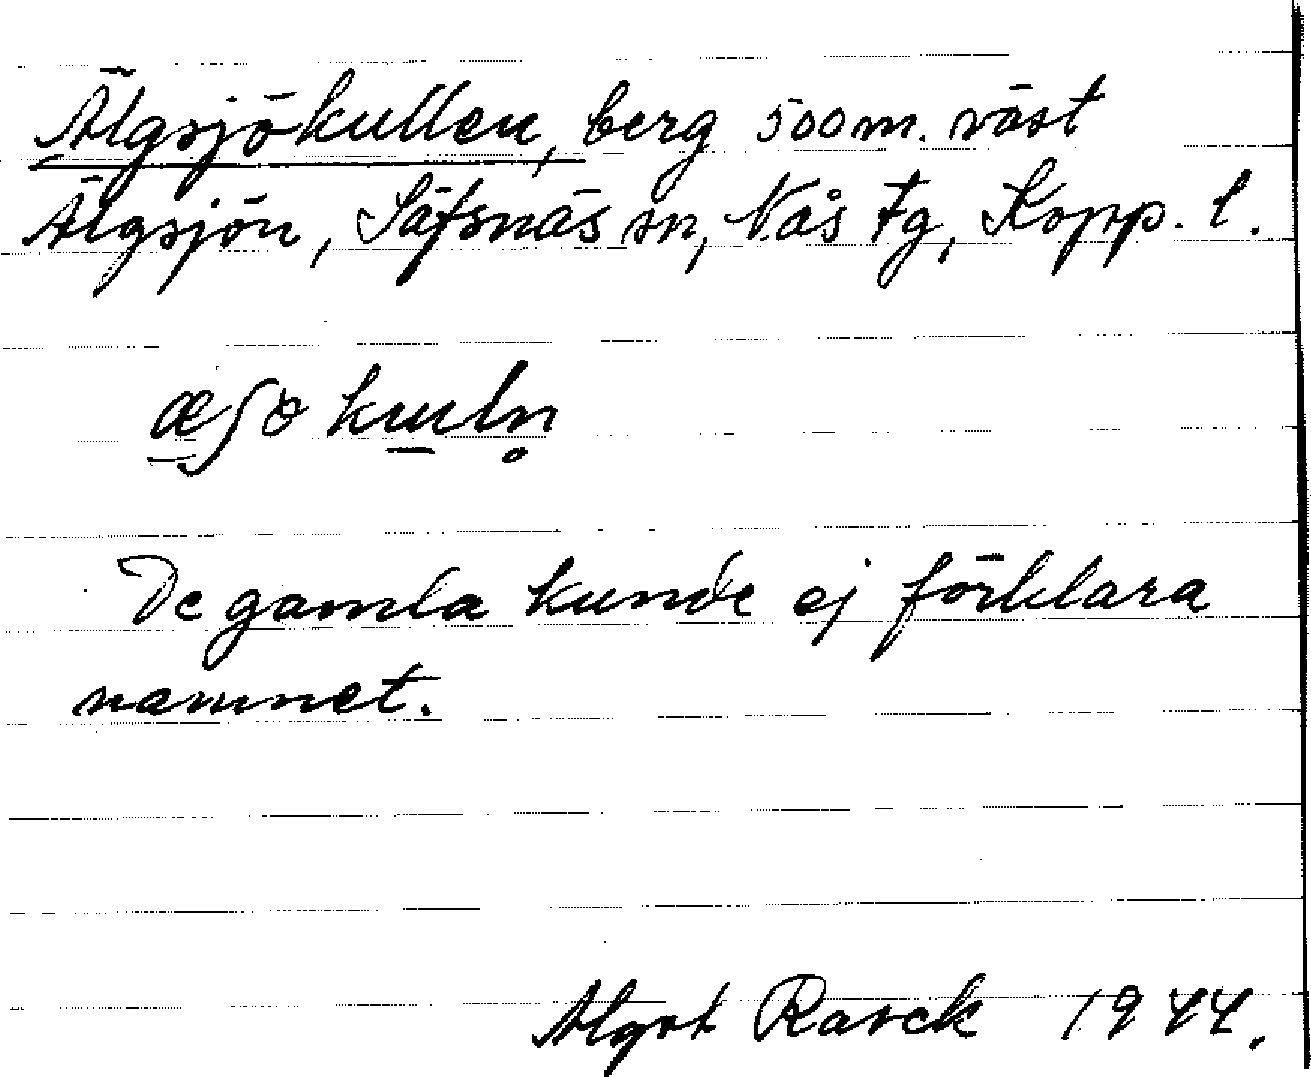 Älgsjökullen, berg 500 m. väst
Älgsjön, Säfsnäs sn, Nås tg, Kopp. l.
æʃo kuuln̥
De gamla kunde ej förklara
namnet.
Algot Rasck 1944.